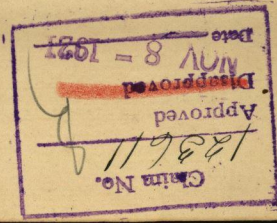 Claim No.
Approved
Disapproved
NOV 8 - 1921
Date